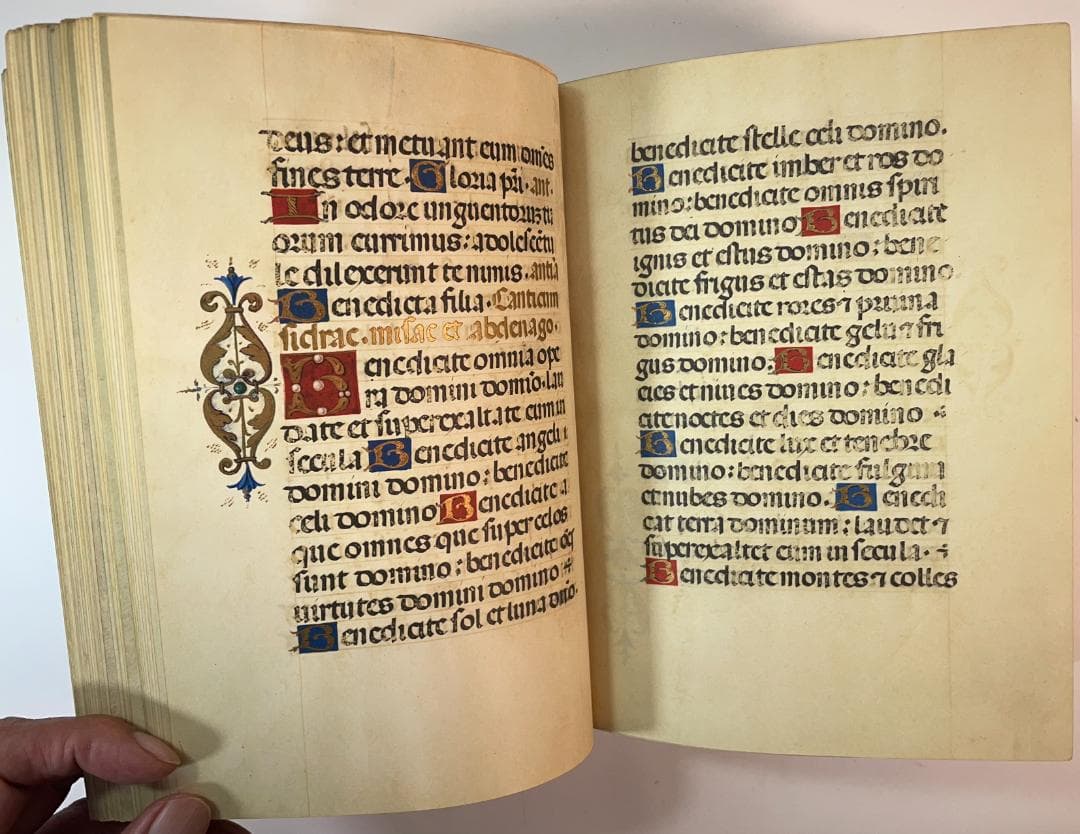 deus : et metuant eum om̄es
fines terre . Gloria pr̄i . ant.
In odore unguentorū tu
orum currimus : adolescētu
le dilexerunt te nimis . antiā
Benedicta filia . Canticum
sidrac . misac et abdenago .
Benedicite omnia ope
ra domini domīo . lau
date et superexaltate eum in
secula . Benedicite angeli
domini domino : benedicite
celi domino Benedicite a
que omnes que super celos
sunt domino : benedicite
virtutes domini domino ÷
Benedicite sol et luna dn̄o .
benedicite stelle celi domino .
Benedicite imber et ros do
mino : benedicite omnis spiri
tus dei domino Benedicite
ignis et estus domino : bene
dicite frigus et estas domino
Benedicite rores ⁊ pruina
domino : benedicite gelu ⁊ fri
gus domino . Benedicite gla
cies et nives domino : benedi
cite noctes et dies domino ÷
Benedicite lux et tenebre
domino : benedicite fulgura
et nubes domino . Benedi
cat terra dominum : laudet ⁊
superexaltet eum in secula . ÷
Benedicite montes ⁊ colles